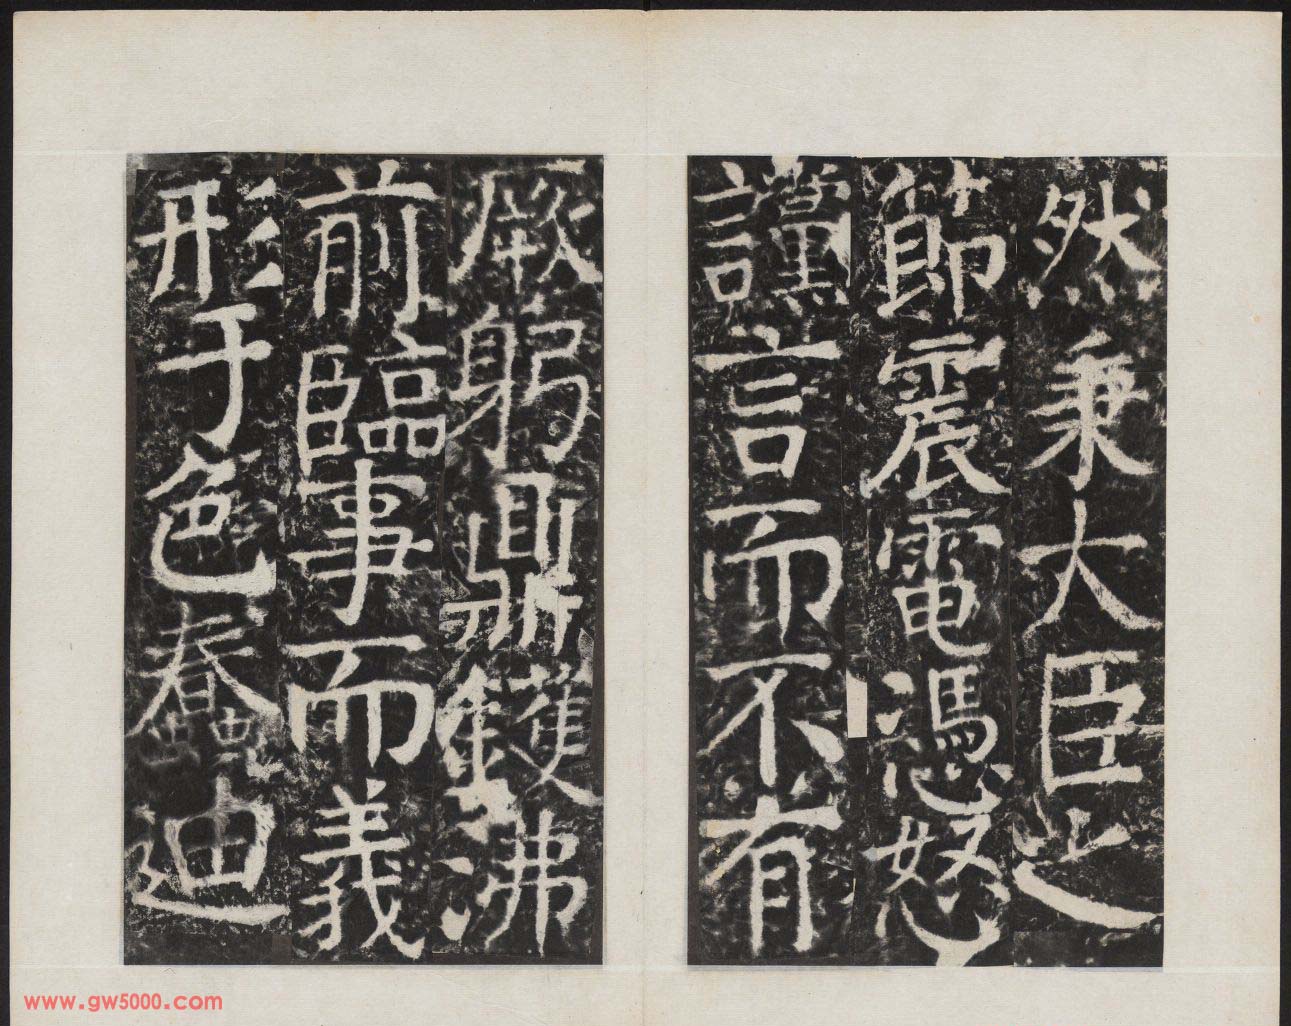 然秉大臣之
節震電馮怒
謹言而不有
厥躬鼎鑊沸
前臨事而義
形于色舂迪
www.gw5000.com